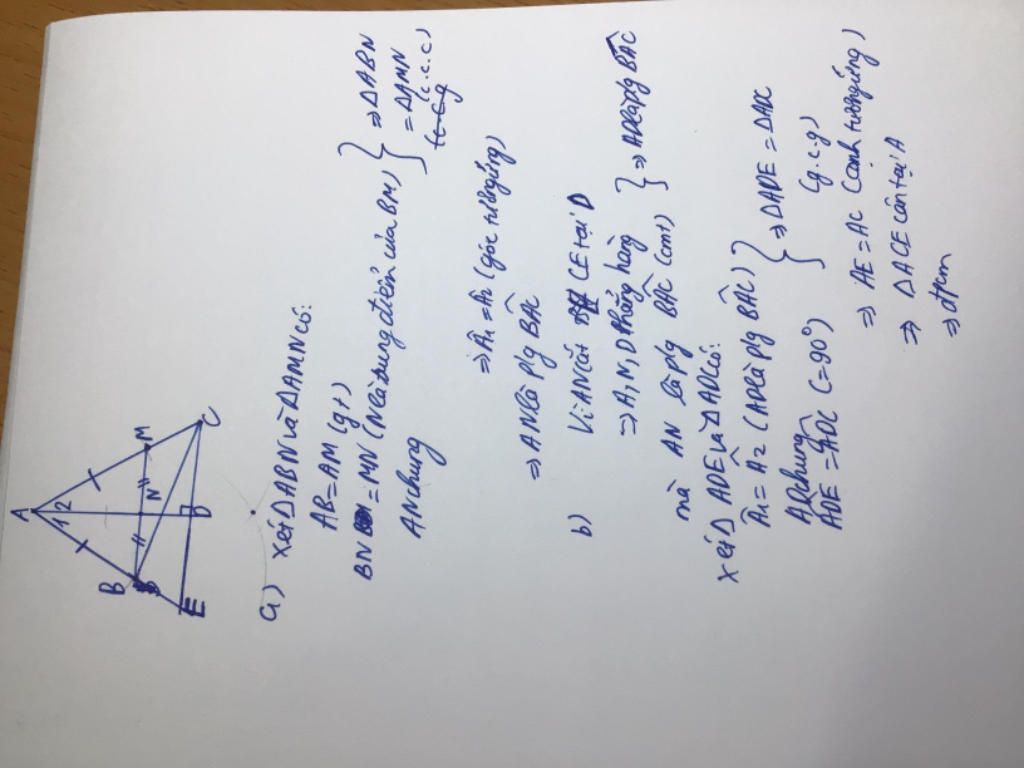 A
1 2
B
M
N
C
D
E
a) Xét ΔABN và ΔAMN có:
AB = AM (gt)
BN = MN (N là trung điểm của BM)
AN chung
⇒ ΔABN
= ΔAMN
(c.c.c)
⇒ Â1 = Â2 (góc tương ứng)
⇒ AN là p/g BÂC
b) Vì AN cắt CE tại D
⇒ A, N, D thẳng hàng
mà AN là p/g BÂC (cmt)
⇒ AD là p/g BÂC
xét Δ ADE và ΔADC có:
Â1 = Â2 (AD là p/g BÂC)
AD chung
ADE = ADC (=90°)
⇒ ΔADE = ΔADC
(g.c.g)
⇒ AE = AC (cạnh tương ứng)
⇒ ΔACE cân tại A
⇒ đpcm